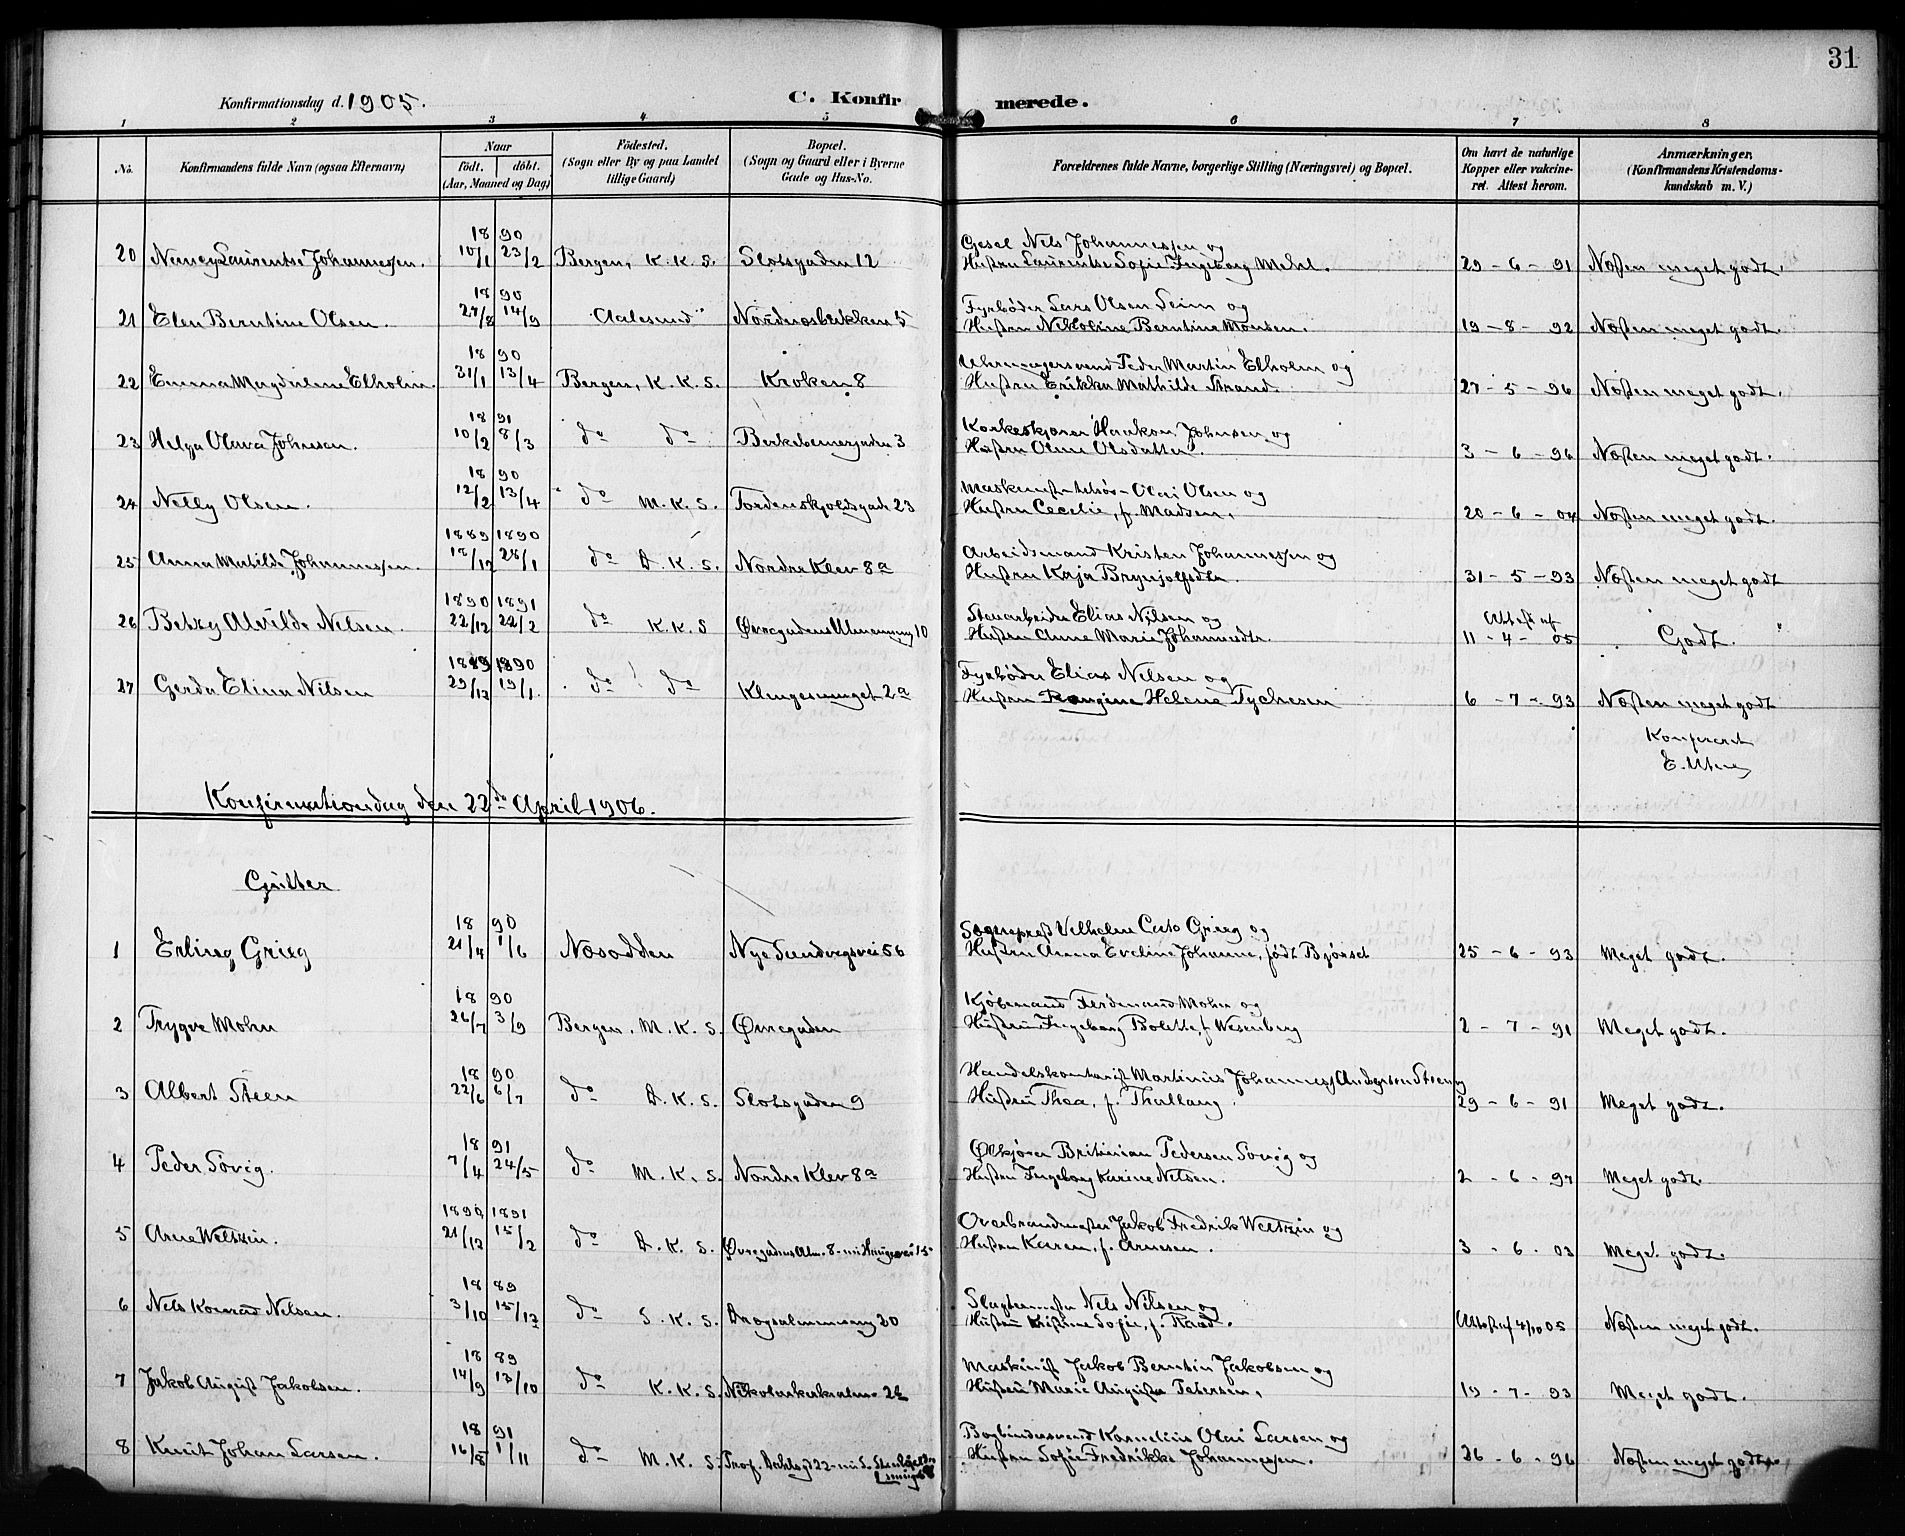 31
Konfirmationsdag d. 1905.
C. Konfirmerede.
1 2 3 4 5 6 7 8
No.
Konfirmandens fulde Navn (ogsaa Efternavn)
Naar
født. døbt.
(Aar, Maaned og Dag)
Fødested.
(Sogn eller By og paa Landet
tillige Gaard)
Bopæl.
(Sogn og Gaard eller i Byerne
Gade og Hus-No.
Forældrenes fulde Navne, borgerlige Stilling (Næringsvei) og Bopæl.
Om havt de naturlige
Kopper eller vakcine-
ret. Attest herom.
Anmærkninger.
(Konfirmandens Kristendoms-
kundskab m. V.)
18 90 Gesel Nils Johannessen og
20 Nancy Laurentse Johannessen. 10/1 23/2 Bergen, K. K. S. Slotsgaden 12 Hustru Laurentse Sofie Ingeborg Mehl. 29-6-91 Næsten meget godt.
18 90 Fyrbøder Lars Olsen Seim og
21 Elen Berntine Olsen. 27/8 14/9 "Aalesund" Nordnæsbakken 5 Hustru Nikoline Berntine Monsen. 19-8-92 Næsten meget godt.
18 90 Uhrmagersvend Peder Martin Elholm og
22 Emma Magdalene Elholm. 31/1 13/4 Bergen, K. K. S. Kroken 8 Hustru Erikka Mathilde Strand. 27-5-96 Næsten meget godt.
18 91 Korkeskjærer Haakon Johnsen og
23 Helga Olava Johnsen. 10/2 8/3 do do Berkebeinergaden 3 Hustru Oline Olsdatter. 3-6-96 Næsten meget godt.
18 90 Olai Olsen og
24 Nelly Olsen. 12/2 13/4 do M. K. S. Tordenskjoldsgade 23 Hustru Cecelie, f. Madsen. 20-6-04 Næsten meget godt.
1889 1890 Arbeidsmand Kristen Johannessen og
25 Anna Matilde Johannessen. 18/12 28/1 do D. K. S. Nordre Klev 8a Hustru Kaja Brynjolfsdtr. 31-5-93 Næsten meget godt
1890 1891 Stuarbeider Elias Nilsen og Attest af
26 Betzy Alvilde Nelsen. 22/12 22/2 do K. K. S Øvregadens Almenning 10 Hustru Anne Marie Johannesdtr. 11-4-05 Godt.
1889 1890 Fyrbøder Elias Nelsen og
27 Gerda Elina Nilsen 29/12 19/1. do do Klingesmuget 2a Hustru Rangine Helene Tychesen 6-7-93 Næsten meget godt
Konfereret
Konfirmationsdag den 22de April 1906.
Gutter
18 90 Sogneprest Vilhelm Cato Grieg og
1 Erling Grieg 21/4 1/6 Næsodden Nye Sandvigsvei 56 Hustru Anna Eveline Johanne, født Bjørset 25-6-93 Meget godt.
18 90 Kjøbmand Ferdinand Mohn og
2 Trygve Mohn 26/7 3/9 Bergen, M. K. S. Øvregaden Hustru Ingeborg Bolette, f. Wesenberg 2-7-91 Meget godt.
18 90 Handelskontorist Martinus Johannes Andersen Steen og
3 Albert Steen 22/6 6/7 do D. K. S. Slotsgaden 9 Hustru Thea, f. Thallaug. 29-6-91 Meget godt.
18 91 Ølkjører Pedersen Sovig og
4 Peder Sovig. 7/4 24/5 do M. K. S. Nordre Klev 8a Hustru Ingeborg Karine Nelsen. 2-6-97 Meget godt.
1890 1891 Overbrandmester Jakob Fredrik Weltzin og
5 Arne Weltzin. 21/12 15/2 do D. K. S. Øvregadens Alm. 8 Hustru Karen, f. Arnesen. 3-6-03 Meget godt.
18 89 Nels Nilsen og
6 Nels Konrad Nelsen. 3/10 15/12 do S. K. S. Dræggsalmenning 20 Hustru Kristine Sofie, f. Attest af 4/10 05 Næsten meget godt.
18 89 Maskinist Jakob Berntin Jakobsen og
7 Jakob August Jakobsen. 14/9 13/10 do K. K. S. Nikolaikirkealm. 2b Hustru Marie Augusta Petersen. 19-7-93 Meget godt.
18 91 Bogbindersvend Kornelius Olai Larsen og
8 Knut Johan Larsen. 16/8 1/11 do M. K. S. Prof. Dahlsgd 22 Hustru Sofie Fredrikke Johannessen. 26-6-96 Næsten meget godt.